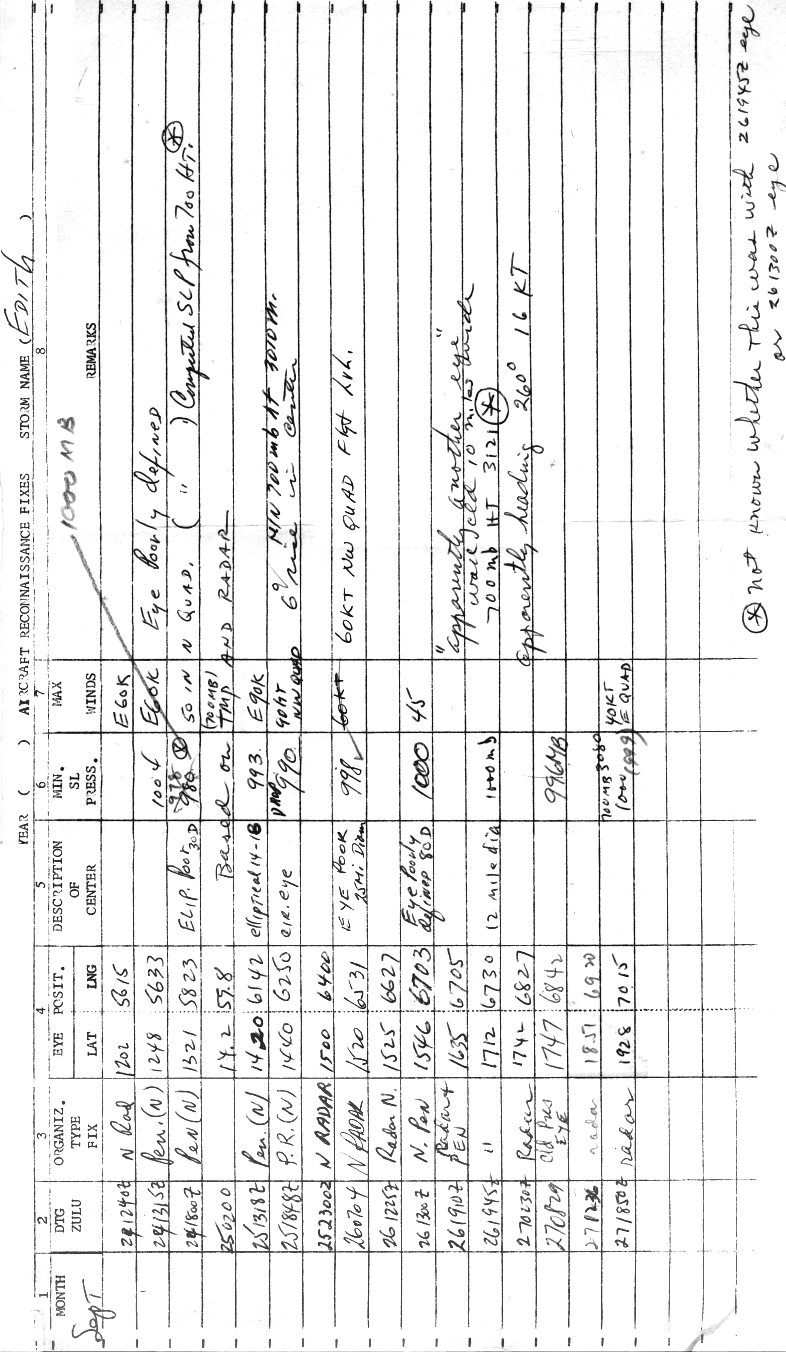 YEAR ( ) AIRCRAFT RECONNAISSANCE FIXES STORM NAME (EDITH )
1 2 3 4 5 6 7 8
MONTH DTG ZULU ORGANIZ. TYPE FIX EYE POSIT. LAT LNG DESCRIPTION OF CENTER MIN. SL PRESS. MAX WINDS REMARKS
1000 MB
Sept 241240Z N Rad 1202 5615 E60K
241315Z Pen. (N) 1248 5633 1004 E60K Eye Poorly defined
241800Z Pen (N) 1321 5823 ELIP. Poor 30D 978 980 * 50 IN N QUAD. ( " ) Computed SLP from 700 HT. *
250200 14.2 59.8 Based on (700MB) TMP AND RADAR
251318Z Pen. (N) 1420 6142 elliptical 14-18 993 E90K
251848Z P.R. (N) 1440 6250 cir. eye DROP 990 90KT NW QUAD 6° rise in center MIN 700 mb HT 3070 m.
252300Z N RADAR 1500 6400
260704 N RADAR 1520 6531 EYE POOR 25Mi Diam 998 60KT 60KT NW QUAD Flgt Lvl.
261225Z Radar N. 1525 6627
261300Z N. Pen 1546 6703 Eye Poorly defined 80 D 1000 45
261910Z Radar & PEN 1635 6705 "apparently another eye"
wall cld 10 miles wide
261945Z " 1712 6730 12 mile dia 1000mb 700 mb HT 3121 *
270230Z Radar 1742 6827 apparently heading 260° 16 KT
270829 Cld Pres EYE 1747 6842 996MB
271236 radar 1851 6920
271850Z radar 1928 7015 700MB 3080 1000 (999) 40KT E QUAD
* not known whether this was with 261945Z eye
or 261300Z eye